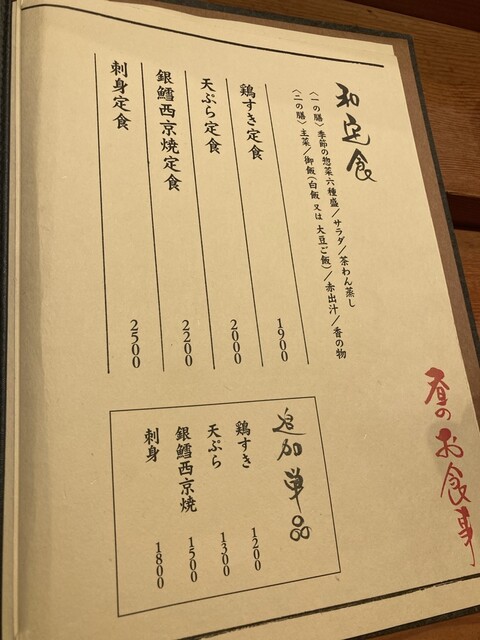 昼のお食事
和定食
〈一の膳〉季節の惣菜六種盛/サラダ/茶わん蒸し
〈二の膳〉主菜/御飯(白飯又は大豆ご飯)/赤出汁/香の物
鶏すき定食 1900
天ぷら定食 2000
銀鱈西京焼定食 2200
刺身定食 2500
追加単品
鶏すき 1200
天ぷら 1300
銀鱈西京焼 1500
刺身 1800